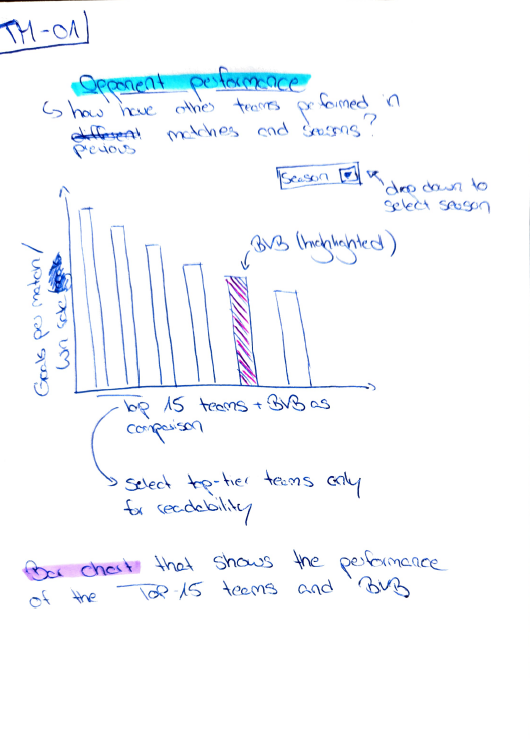 TM-01
Opponent performance
↳ how have other teams performed in
different matches and seasons?
previous
Season
drop down to
select season
BVB (highlighted)
Goals per match /
Win rate
Top 15 teams + BVB as
comparison
select top-tier teams only
for readability
Bar chart that shows the performance
of the Top-15 teams and BVB